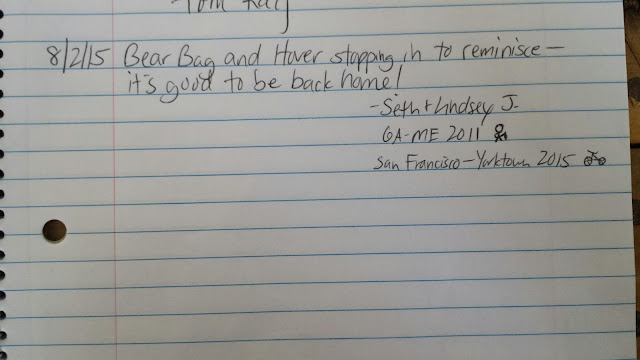 8/2/15 Bear Bag and Hover stopping in to reminisce—
it's good to be back home!
-Seth + Lindsey J.
GA-ME 2011
San Francisco-Yorktown 2015